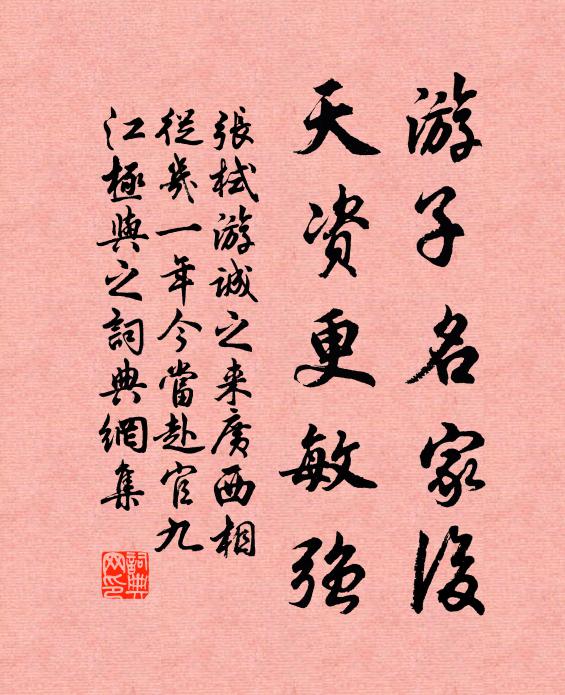 游子名家後
天資更敏強
張栻游誠之来廣西相
從幾一年今當赴官九
江極與之詞典網集
詞典网印